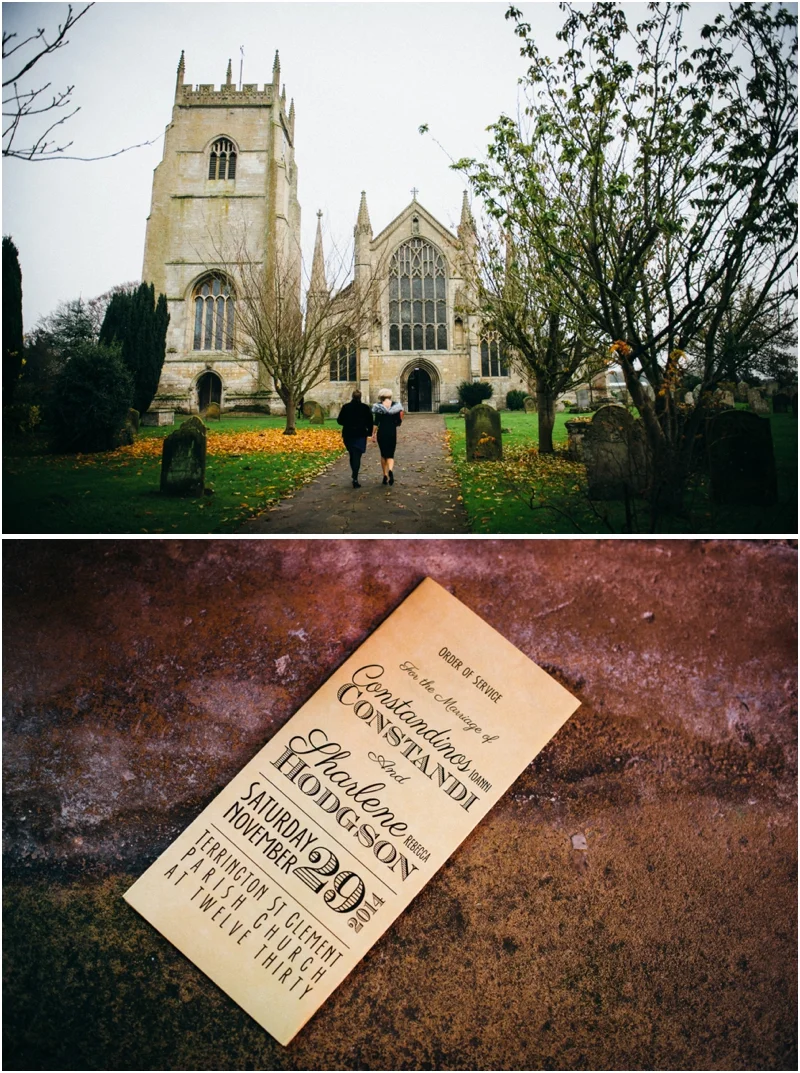 ORDER OF SERVICE
For the Marriage of
Constandinos IOANNI
CONSTANDI
And
Sharlene REBECCA
HODGSON
SATURDAY
NOVEMBER 29 2014
TERRINGTON ST CLEMENT
PARISH CHURCH
AT TWELVE THIRTY